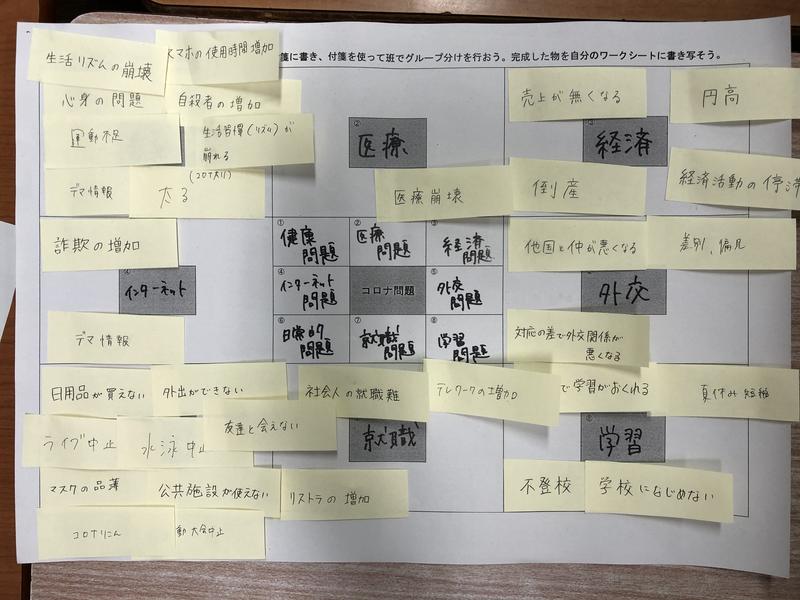 箋に書き、付箋を使って班でグループ分けを行おう。完成した物を自分のワークシートに書き写そう。
生活リズムの崩壊
スマホの使用時間増加
心身の問題
自殺者の増加
運動不足
生活習慣(リズム)が
崩れる
(コロナ太り)
デマ情報
太る
② 医療
医療崩壊
売上が無くなる
円高
経済
倒産
経済活動の停滞
詐欺の増加
インターネット
デマ情報
① 健康問題
② 医療問題
③ 経済問題
④ インターネット問題
コロナ問題
⑤ 外交問題
⑥ 日常的問題
⑦ 就職問題
⑧ 学習問題
他国と仲が悪くなる
差別、偏見
外交
対応の差で外交関係が
悪くなる
日用品が買えない
外出ができない
ライブ中止
水泳中止
友達と会えない
マスクの品薄
公共施設が使えない
コロナりこん
動大会中止
社会人の就職難
テレワークの増加
就職
リストラの増加
で学習がおくれる
夏休み短縮
学習
不登校
学校になじめない